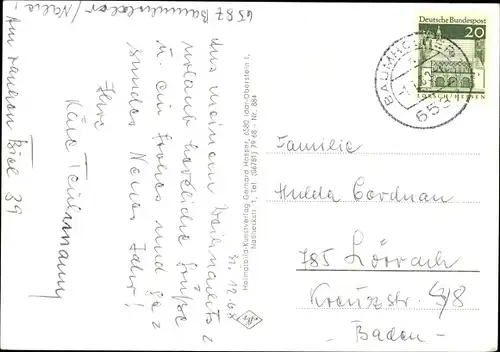 6587 Baumholder/Nahe!
Am rauhen Biel 39
31.12.6
Aus meinem Weihnachts=
urlaub herzliche Grüße
u. ein frohes und ge=
sundes Neues Jahr!
Ihre
Käte
Heimatbild-Kunstverlag Gerhard Hosser, 6580 Idar-Oberstein 1,
1, Tel. (06781) 79 68 - Nr. 884
Deutsche Bundespost
20
LORSCH/HESSEN
BAUMHOLDER
Familie
Hulda Cordnau
785 Lörrach
Kreuzstr.
- Baden -